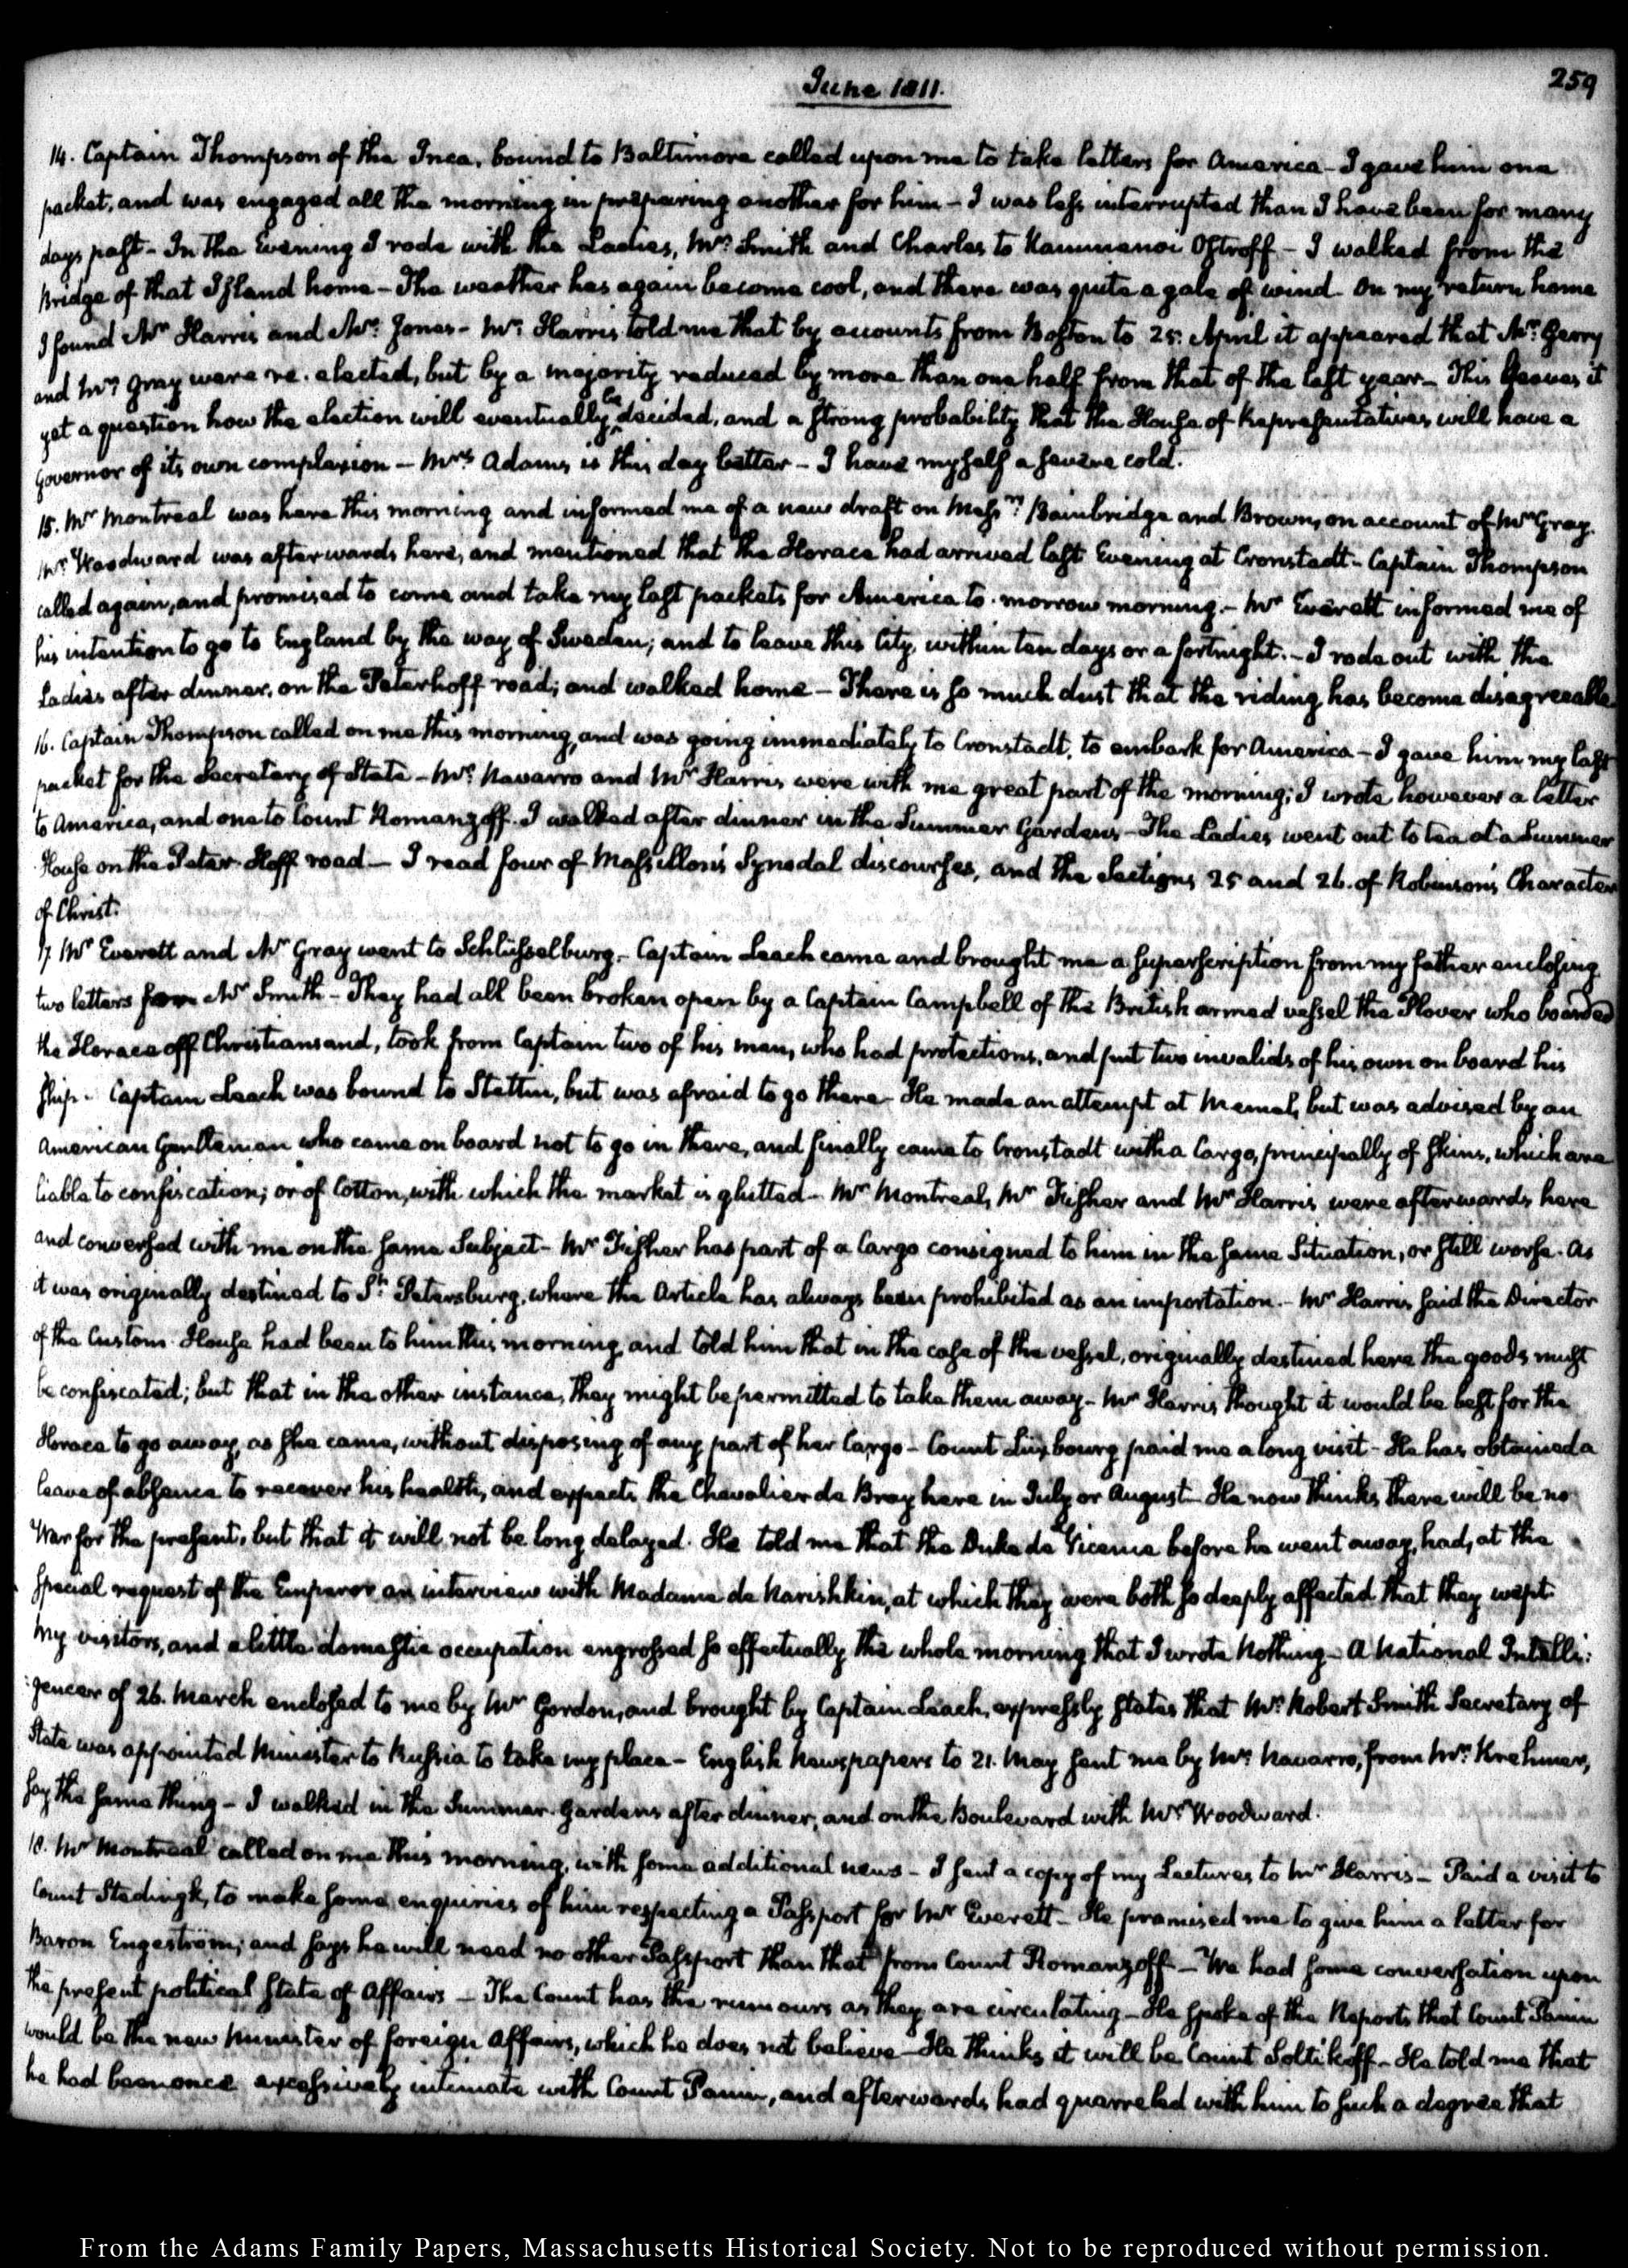 June 1811.
259
14. Captain Thompson of the Inca, bound to Baltimore called upon me to take letters for America - I gave him one
packet, and was engaged all the morning in preparing another for him - I was less interrupted than I have been for many
days past - In the Evening I rode with the Ladies, Mr. Smith and Charles to Kammenoi Ostroff - I walked from the
Bridge of that Island home - The weather has again become cool, and there was quite a gale of wind. On my return home
I found Mr Harris and Mr. Jones - Mr. Harris told me that by accounts from Boston to 25. April it appeared that Mr. Gerry
and Mr. Gray were re-elected, but by a majority reduced by more than one half from that of the last year - This leaves it
yet a question how the election will eventually be decided, and a strong probability that the House of Representatives will have a
Governor of its own complexion - Mrs. Adams is this day better - I have myself a severe cold.
15. Mr Montreal was here this morning and informed me of a new draft on Messrs. Bainbridge and Brown, on account of Mr Gray.
Mr. Woodward was afterwards here, and mentioned that the Horace had arrived last Evening at Cronstadt - Captain Thompson
called again, and promised to come and take my last packets for America to-morrow morning. - Mr Everett informed me of
his intention to go to England by the way of Sweden; and to leave this City, within ten days or a fortnight. - I rode out with the
Ladies after dinner, on the Peterhoff road; and walked home - There is so much dust that the riding has become disagreeable
16. Captain Thompson called on me this morning, and was going immediately to Cronstadt, to embark for America - I gave him my last
packet for the Secretary of State - Mr. Navarro and Mr Harris were with me great part of the morning; I wrote however a letter
to America, and one to Count Romanzoff. I walked after dinner in the Summer Gardens - The Ladies went out to tea at a Summer
House on the Peter-Hoff road - I read four of Massillon's Synodal discourses, and the Sections 25 and 26. of Robinson's Character
of Christ.
17. Mr Everett and Mr Gray went to Schlüsselburg. - Captain Leach came and brought me a superscription from my father enclosing
two letters from Mr Smith - They had all been broken open by a Captain Campbell of the British armed vessel the Plover who boarded
the Horace off Christiansand, took from Captain two of his men, who had protections, and put two invalids of his own on board his
ship - Captain Leach was bound to Stettin, but was afraid to go there - He made an attempt at Memel, but was advised by an
American Gentleman who came on board not to go in there, and finally came to Cronstadt with a Cargo, principally of skins, which are
liable to confiscation; or of Cotton, with which the market is glutted - Mr Montreal, Mr Fisher and Mr Harris were afterwards here
and conversed with me on the same Subject - Mr Fisher has part of a Cargo consigned to him in the same Situation, or still worse. As
it was originally destined to St. Petersburg, where the Article has always been prohibited as an importation. - Mr Harris said the Director
of the Custom-House had been to him this morning and told him that in the case of the vessel, originally destined here the goods must
be confiscated; but that in the other instance, they might be permitted to take them away - Mr Harris thought it would be best for the
Horace to go away, as she came, without disposing of any part of her Cargo - Count Luxbourg paid me a long visit - He has obtained a
leave of absence to recover his health, and expects the Chevalier de Bray here in July or August - He now thinks there will be no
War for the present, but that it will not be long delayed. He told me that the Duke de Vicence before he went away, had, at the
special request of the Emperor an interview with Madame de Narishkin, at which they were both so deeply affected that they wept
My visitors, and a little domestic occupation engrossed so effectually the whole morning that I wrote Nothing - A National Intelli-
gencer of 26. March enclosed to me by Mr Gordon, and brought by Captain Leach, expressly states that Mr. Robert Smith Secretary of
State was appointed Minister to Russia to take my place - English Newspapers to 21. May sent me by Mr. Navarro, from Mr. Krehmer,
say the same thing - I walked in the Summer-Gardens after dinner, and on the Boulevard with Mr. Woodward.
18. Mr Montreal called on me this morning, with some additional news - I sent a copy of my Lectures to Mr Harris - Paid a visit to
Count Stedingk, to make some enquiries of him respecting a Passport for Mr Everett - He promised me to give him a letter for
Baron Engeström; and says he will need no other Passport than that from Count Romanzoff - We had some conversation upon
the present political State of Affairs - The Count has the rumours as they are circulating - He spoke of the Reports that Count Panin
would be the new Minister of foreign Affairs, which he does not believe - He thinks it will be Count Soltikoff - He told me that
he had been once excessively intimate with Count Panin, and afterwards had quarreled with him to such a degree that
From the Adams Family Papers, Massachusetts Historical Society. Not to be reproduced without permission.